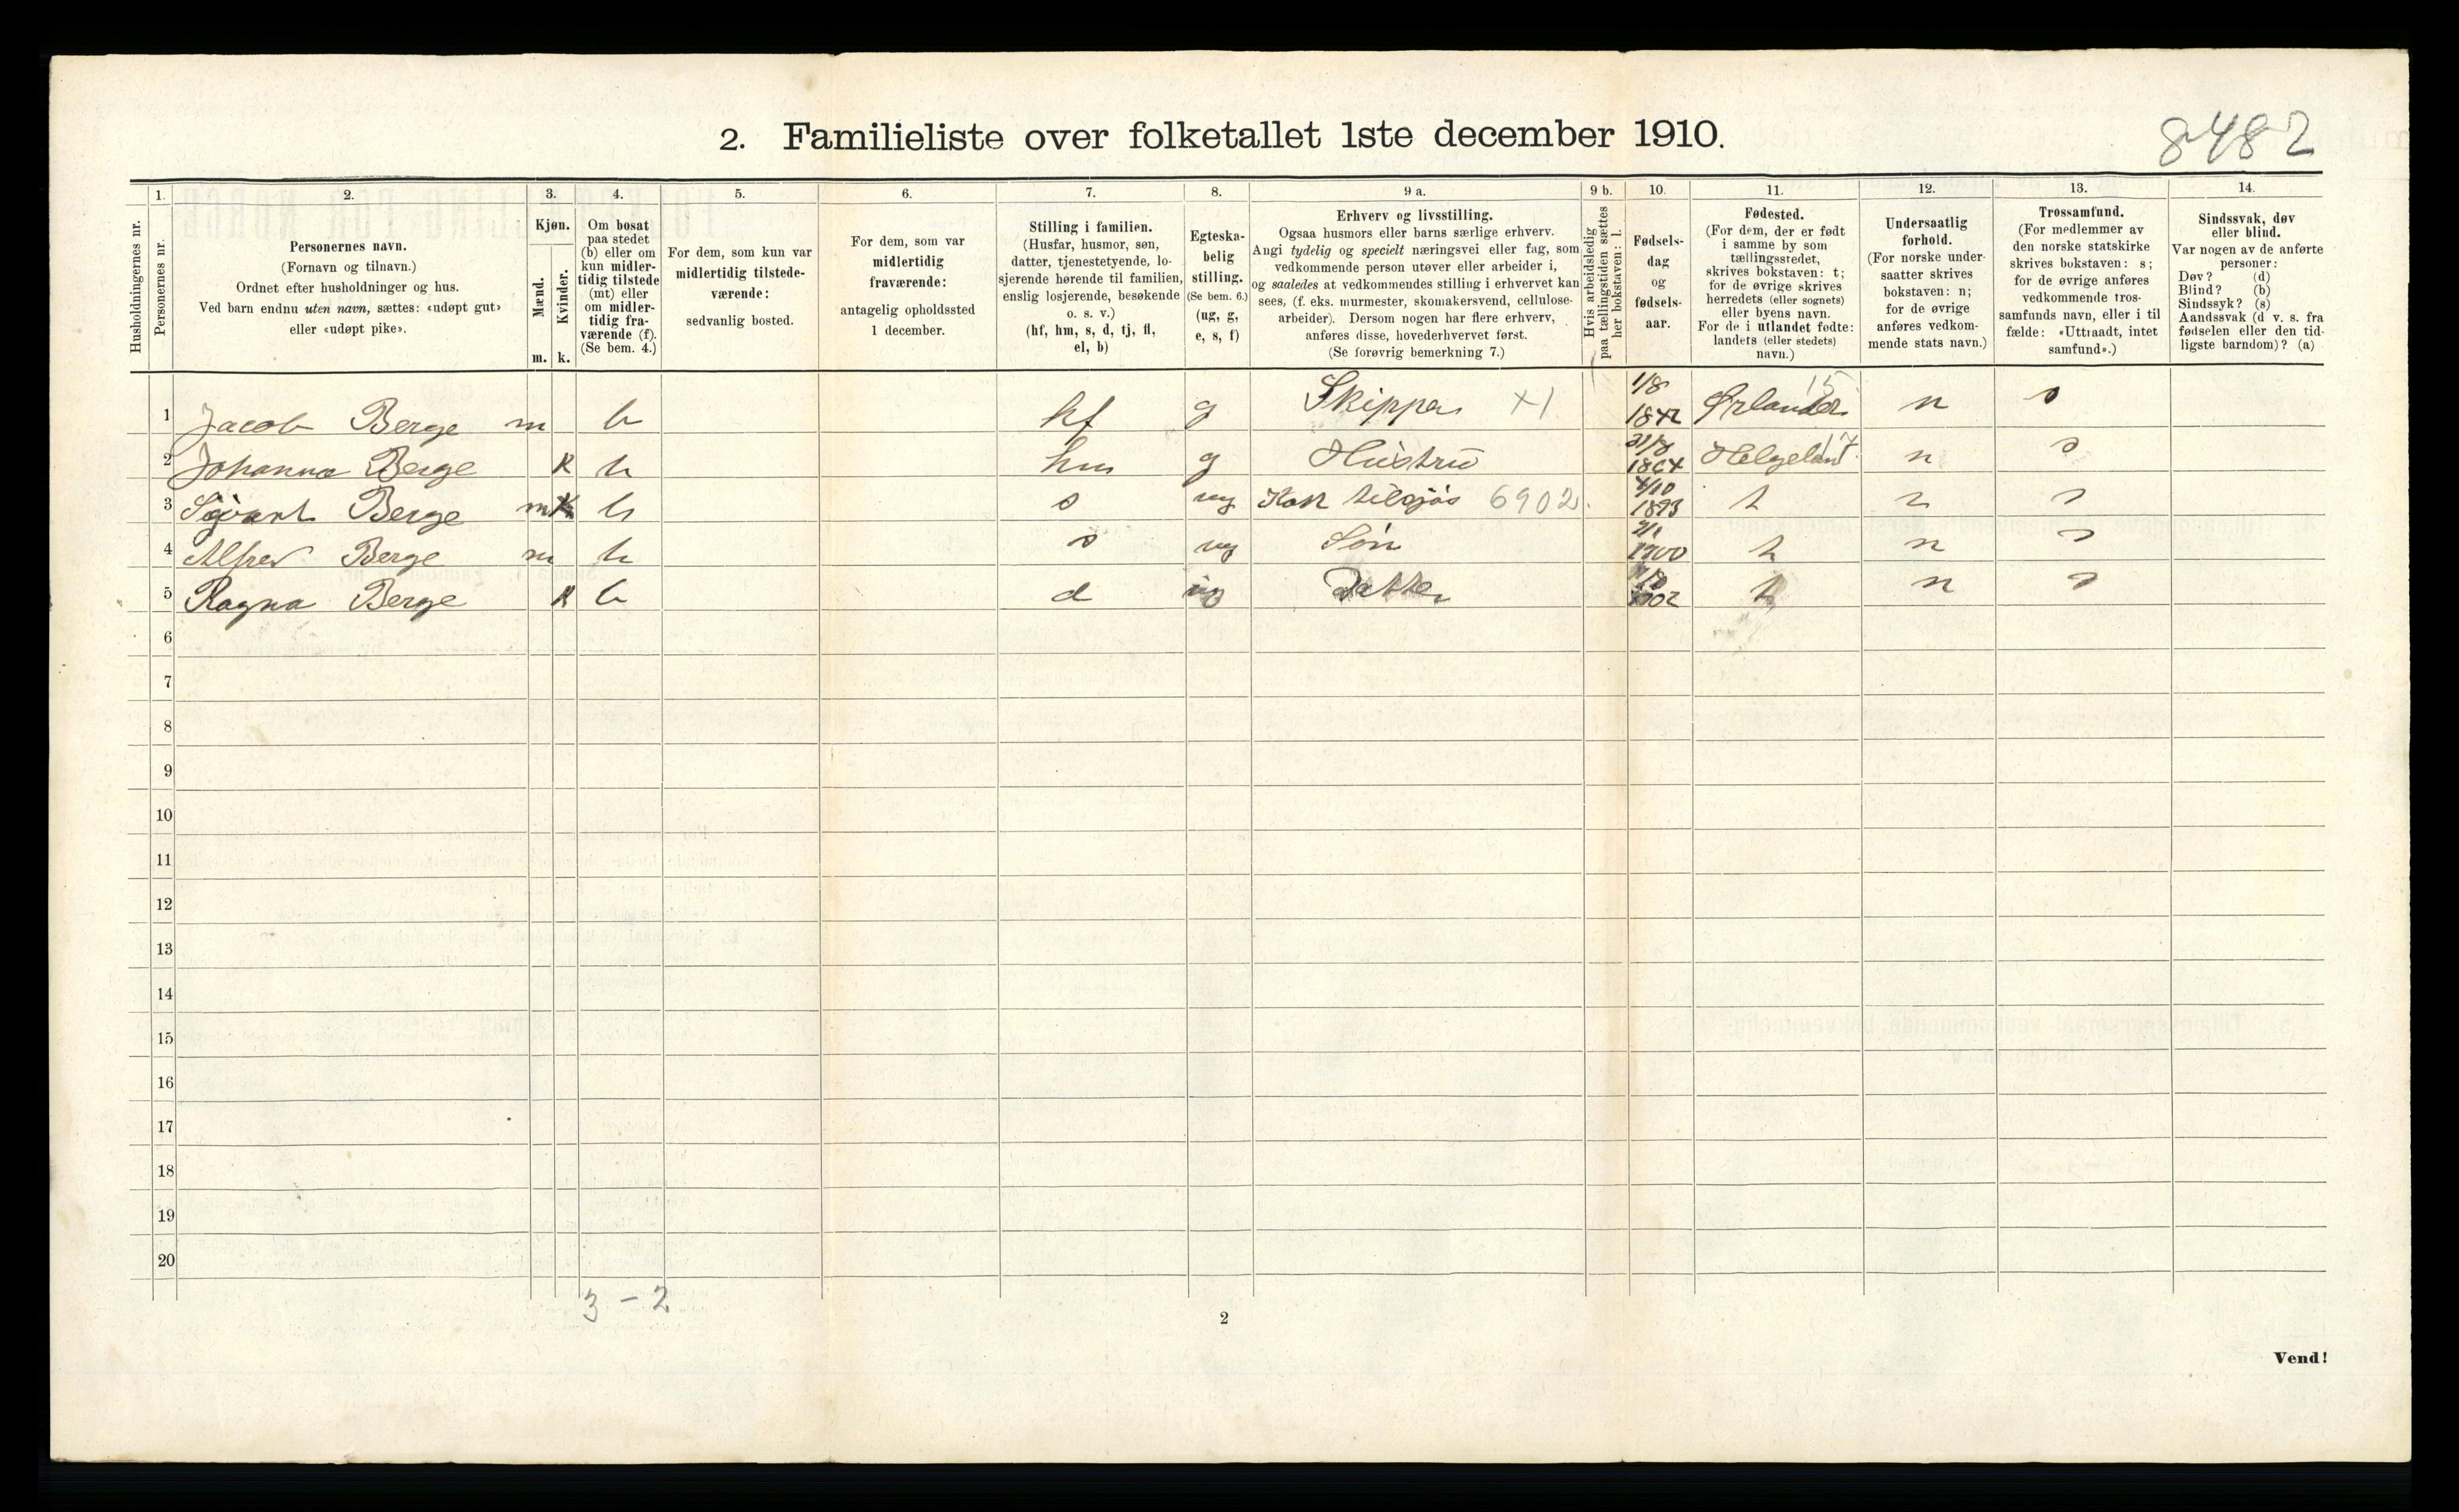 2. Familieliste over folketallet 1ste december 1910.
8482
Husholdningernes nr.
1.
Personernes nr.
2.
Personernes navn.
(Fornavn og tilnavn.)
Ordnet efter husholdninger og hus.
Ved barn endnu uten navn, sættes: «udøpt gut»
eller «udøpt pike».
3.
Kjøn.
Mænd.
Kvinder.
m. k.
4.
Om bosat
paa stedet
(b) eller om
kun midler-
tidig tilstede
(mt) eller
om midler-
tidig fra-
værende (f).
(Se bem. 4.)
5.
For dem, som kun var
midlertidig tilstede-
værende:
sedvanlig bosted.
6.
For dem, som var
midlertidig
fraværende:
antagelig opholdssted
1 december.
7.
Stilling i familien.
(Husfar, husmor, søn,
datter, tjenestetyende, lo-
sjerende hørende til familien,
enslig losjerende, besøkende
o. s. v.)
(hf, hm, s, d, tj, fl,
el, b)
8.
Egteska-
belig
stilling.
(Se bem. 6.)
(ug, g,
e, s, f)
9 a.
Erhverv og livsstilling.
Ogsaa husmors eller barns særlige erhverv.
Angi tydelig og specielt næringsvei eller fag, som
vedkommende person utøver eller arbeider i,
og saaledes at vedkommendes stilling i erhvervet kan
sees, (f. eks. murmester, skomakersvend, cellulose-
arbeider). Dersom nogen har flere erhverv,
anføres disse, hovederhvervet først.
(Se forøvrig bemerkning 7.)
9 b.
Hvis arbeidsledig
paa tællingstiden sættes
her bokstaven: l.
10.
Fødsels-
dag
og
fødsels-
aar.
11.
Fødested.
(For dem, der er født
i samme by som
tællingsstedet,
skrives bokstaven: t;
for de øvrige skrives
herredets (eller sognets)
eller byens navn.
For de i utlandet fødte:
landets (eller stedets)
navn.)
12.
Undersaatlig
forhold.
(For norske under-
saatter skrives
bokstaven: n;
for de øvrige
anføres vedkom-
mende stats navn.)
13.
Trossamfund.
(For medlemmer av
den norske statskirke
skrives bokstaven: s;
for de øvrige anføres
vedkommende tros-
samfunds navn, eller i til
fælde: «Uttraadt, intet
samfund».)
14.
Sindssvak, døv
eller blind.
Var nogen av de anførte
personer:
Døv? (d)
Blind? (b)
Sindssyk? (s)
Aandssvak (d v. s. fra
fødselen eller den tid-
ligste barndom)? (a)
1 Jacob Berge m b hf g Skipper x1 1/8 1842 15 n s
2 Johanna Berge k b hm g Hustru 1864 Helgeland 17 n s
3 Berge m b s ug Kok tilsjøs 6902 4/10 1893 t n s
4 Alfred Berge m b s ug Søn 1900 t n s
5 Ragna Berge k b d ug Datter 1902 t n s
6
7
8
9
10
11
12
13
14
15
16
17
18
19
20
3 - 2
2
Vend!